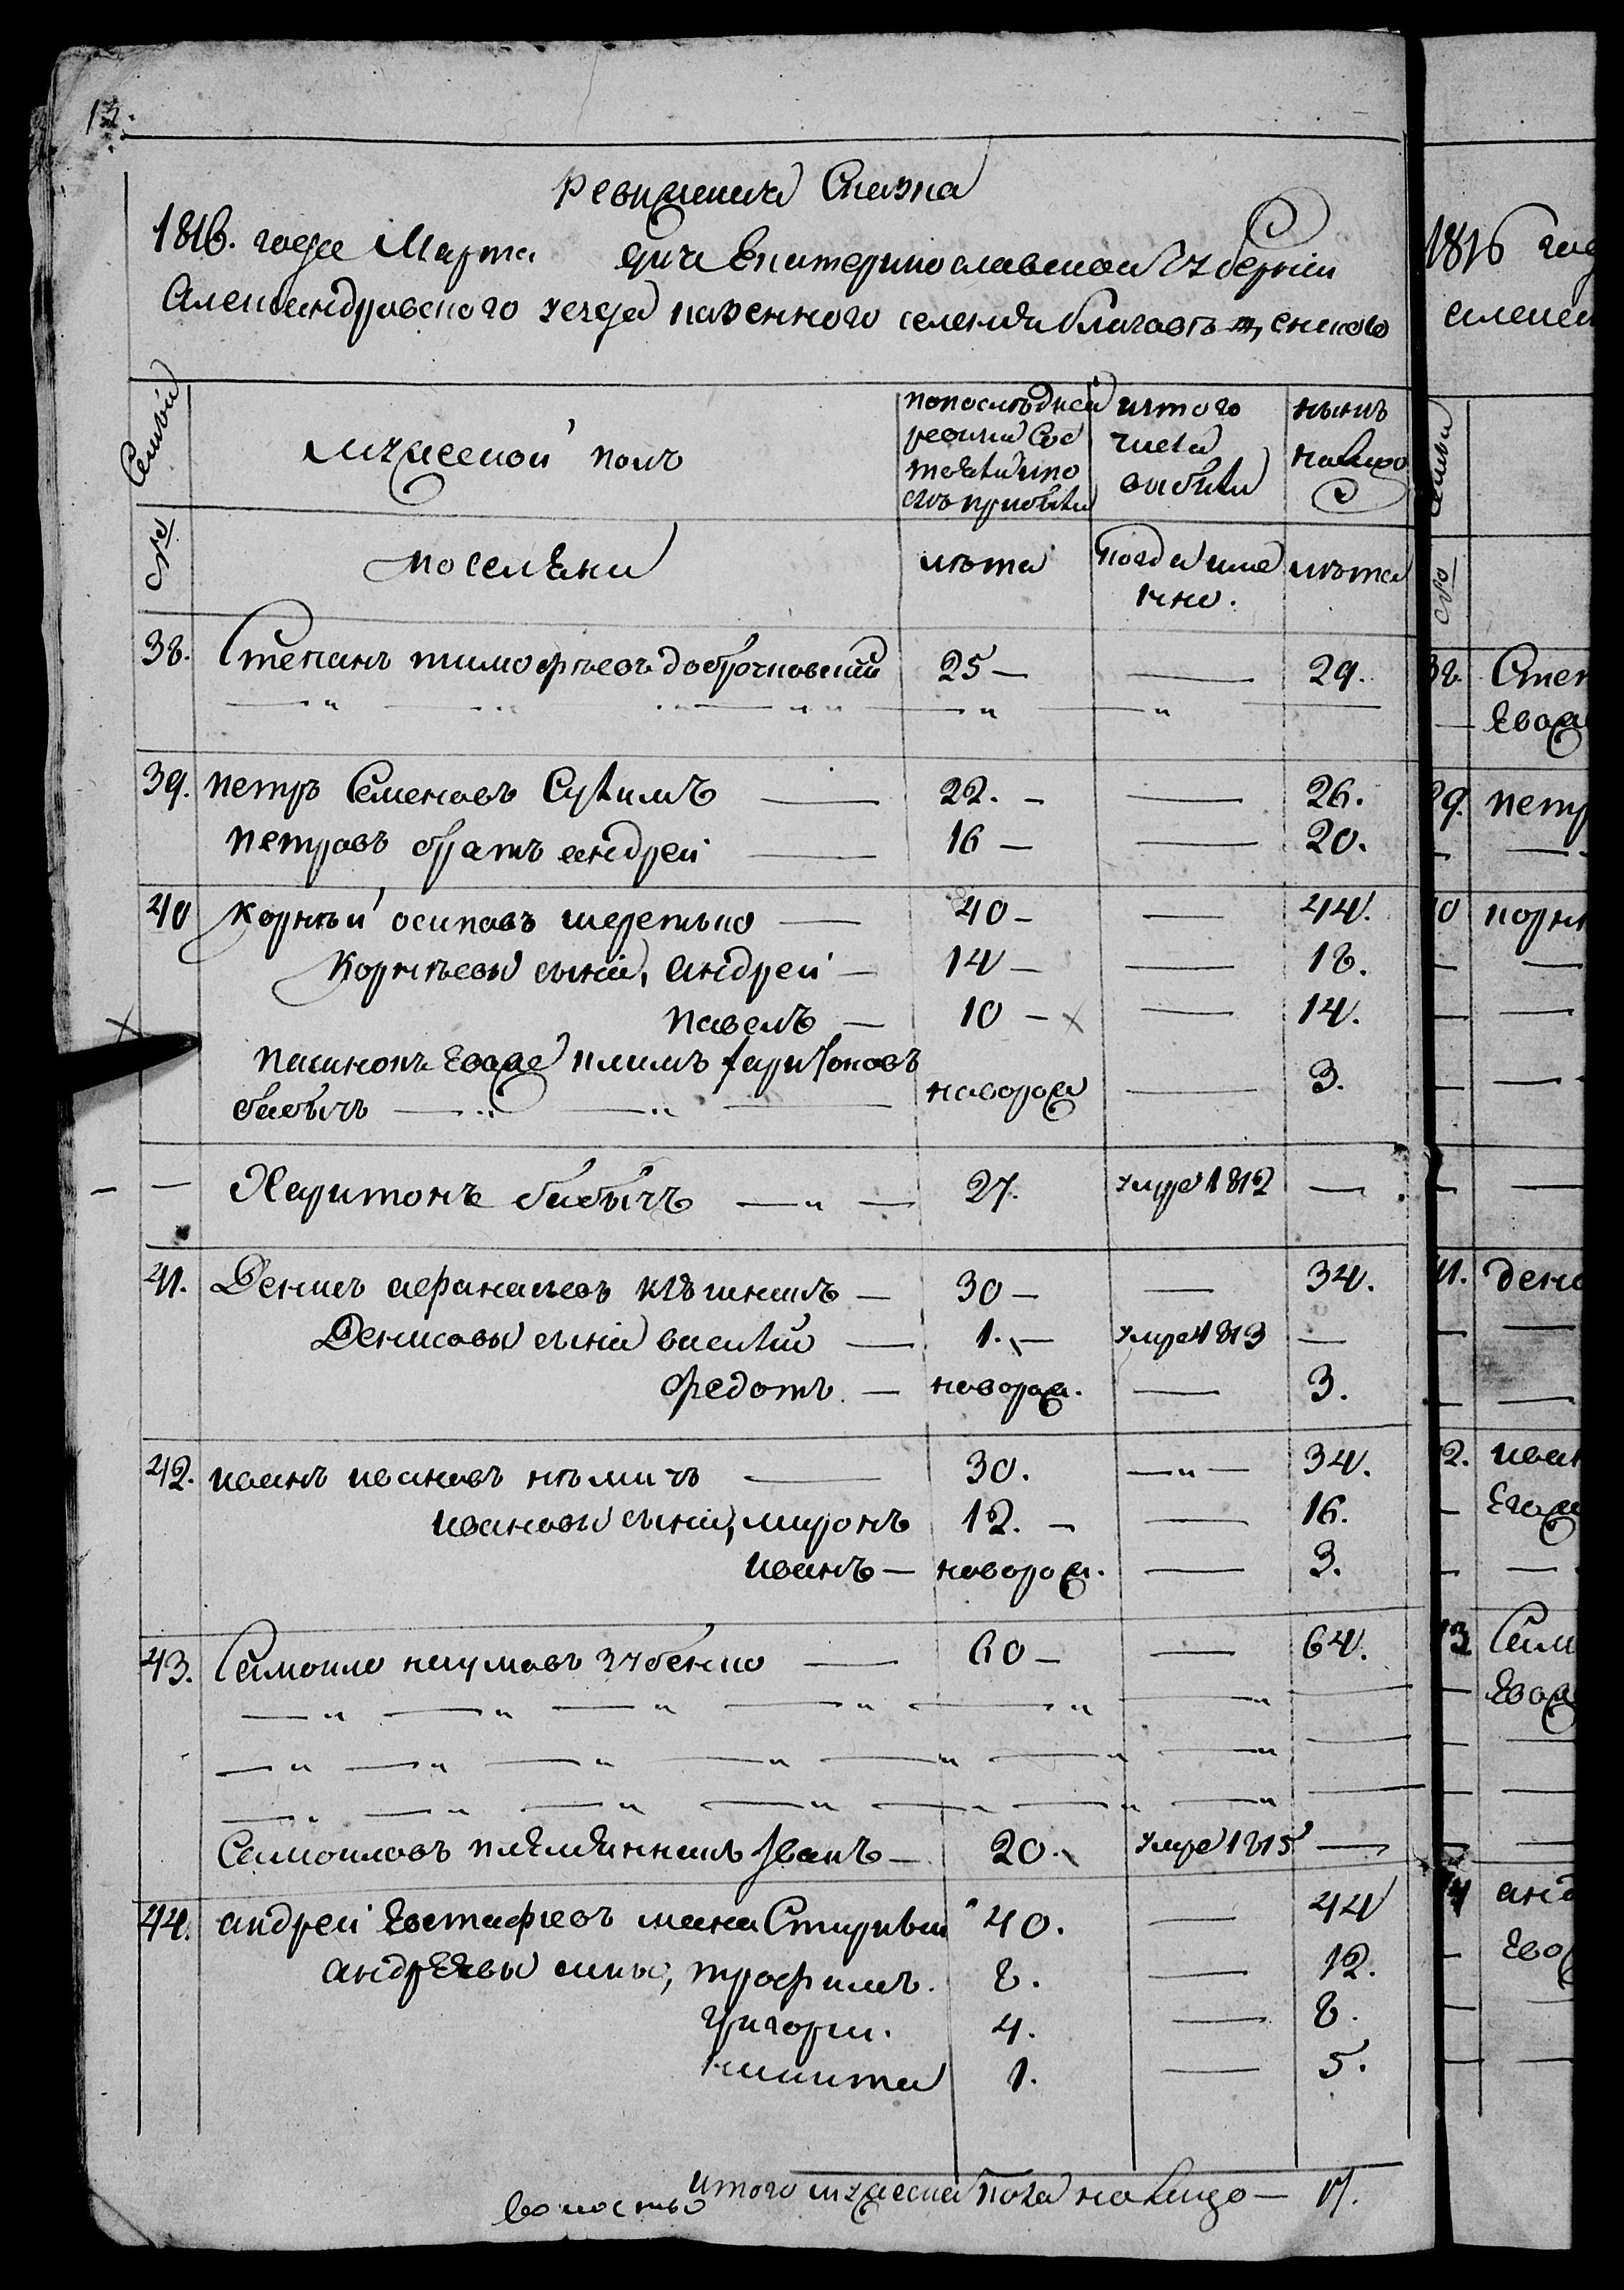 13.
Ревижская Сказка
1816. года Марта дня Екатеринославской Губернии
Александровского уезда казенного селения благовѣщенского
Семьи
мужеской полъ
попослѣдней
ревизiи Сос
тояли ипо
слѣ прибыли
изтого
числа
выбыли
нынѣ
на лицо
№
поселяни
лѣта
когда име
нно.
лѣта
38. Степанъ тимофѣевъ 25 — — 29.
39. петръ Семеновъ Сулимъ — 22. — — 26.
петровъ братъ андрей — 16 — — 20.
40 корнѣй осиповъ шеретько — 40 — — 44.
Корнѣевы сыни, андрей — 14 — — 18.
павелъ — 10 — х — 14.
х
пасинокъ Евож климъ харитоновъ
бабычъ — новорож — 3.
— — Харитонъ бабычъ — 27. умре 1812 —
41. Денисъ афанасьевъ — 30 — — 34.
Денисовы сыни василий — 1. — умре 1813 —
федотъ. — новорож. — 3.
42. иванъ ивановъ нѣмичъ — 30. — 34.
ивановы сыни, миронъ 12. — — 16.
иванъ — новорож. — 3.
43. Самоило наумовъ зубенко — 60 — — 64.
Самоиловъ племянникъ Иванъ — 20. умре 1815 —
44. андрей Евстафиевъ 40. — 44
андреевы сины, трофимъ. 8. — 12.
григори. 4. — 8.
никита 1. — 5.
итого мужеска пола на лицо — 17.
1816 год
селен
Семьи
№
38. Степ
Евож
39. петр
40 корнѣ
41. дени
42. иван
Егож
43 Само
Евож
44 анд
Евож